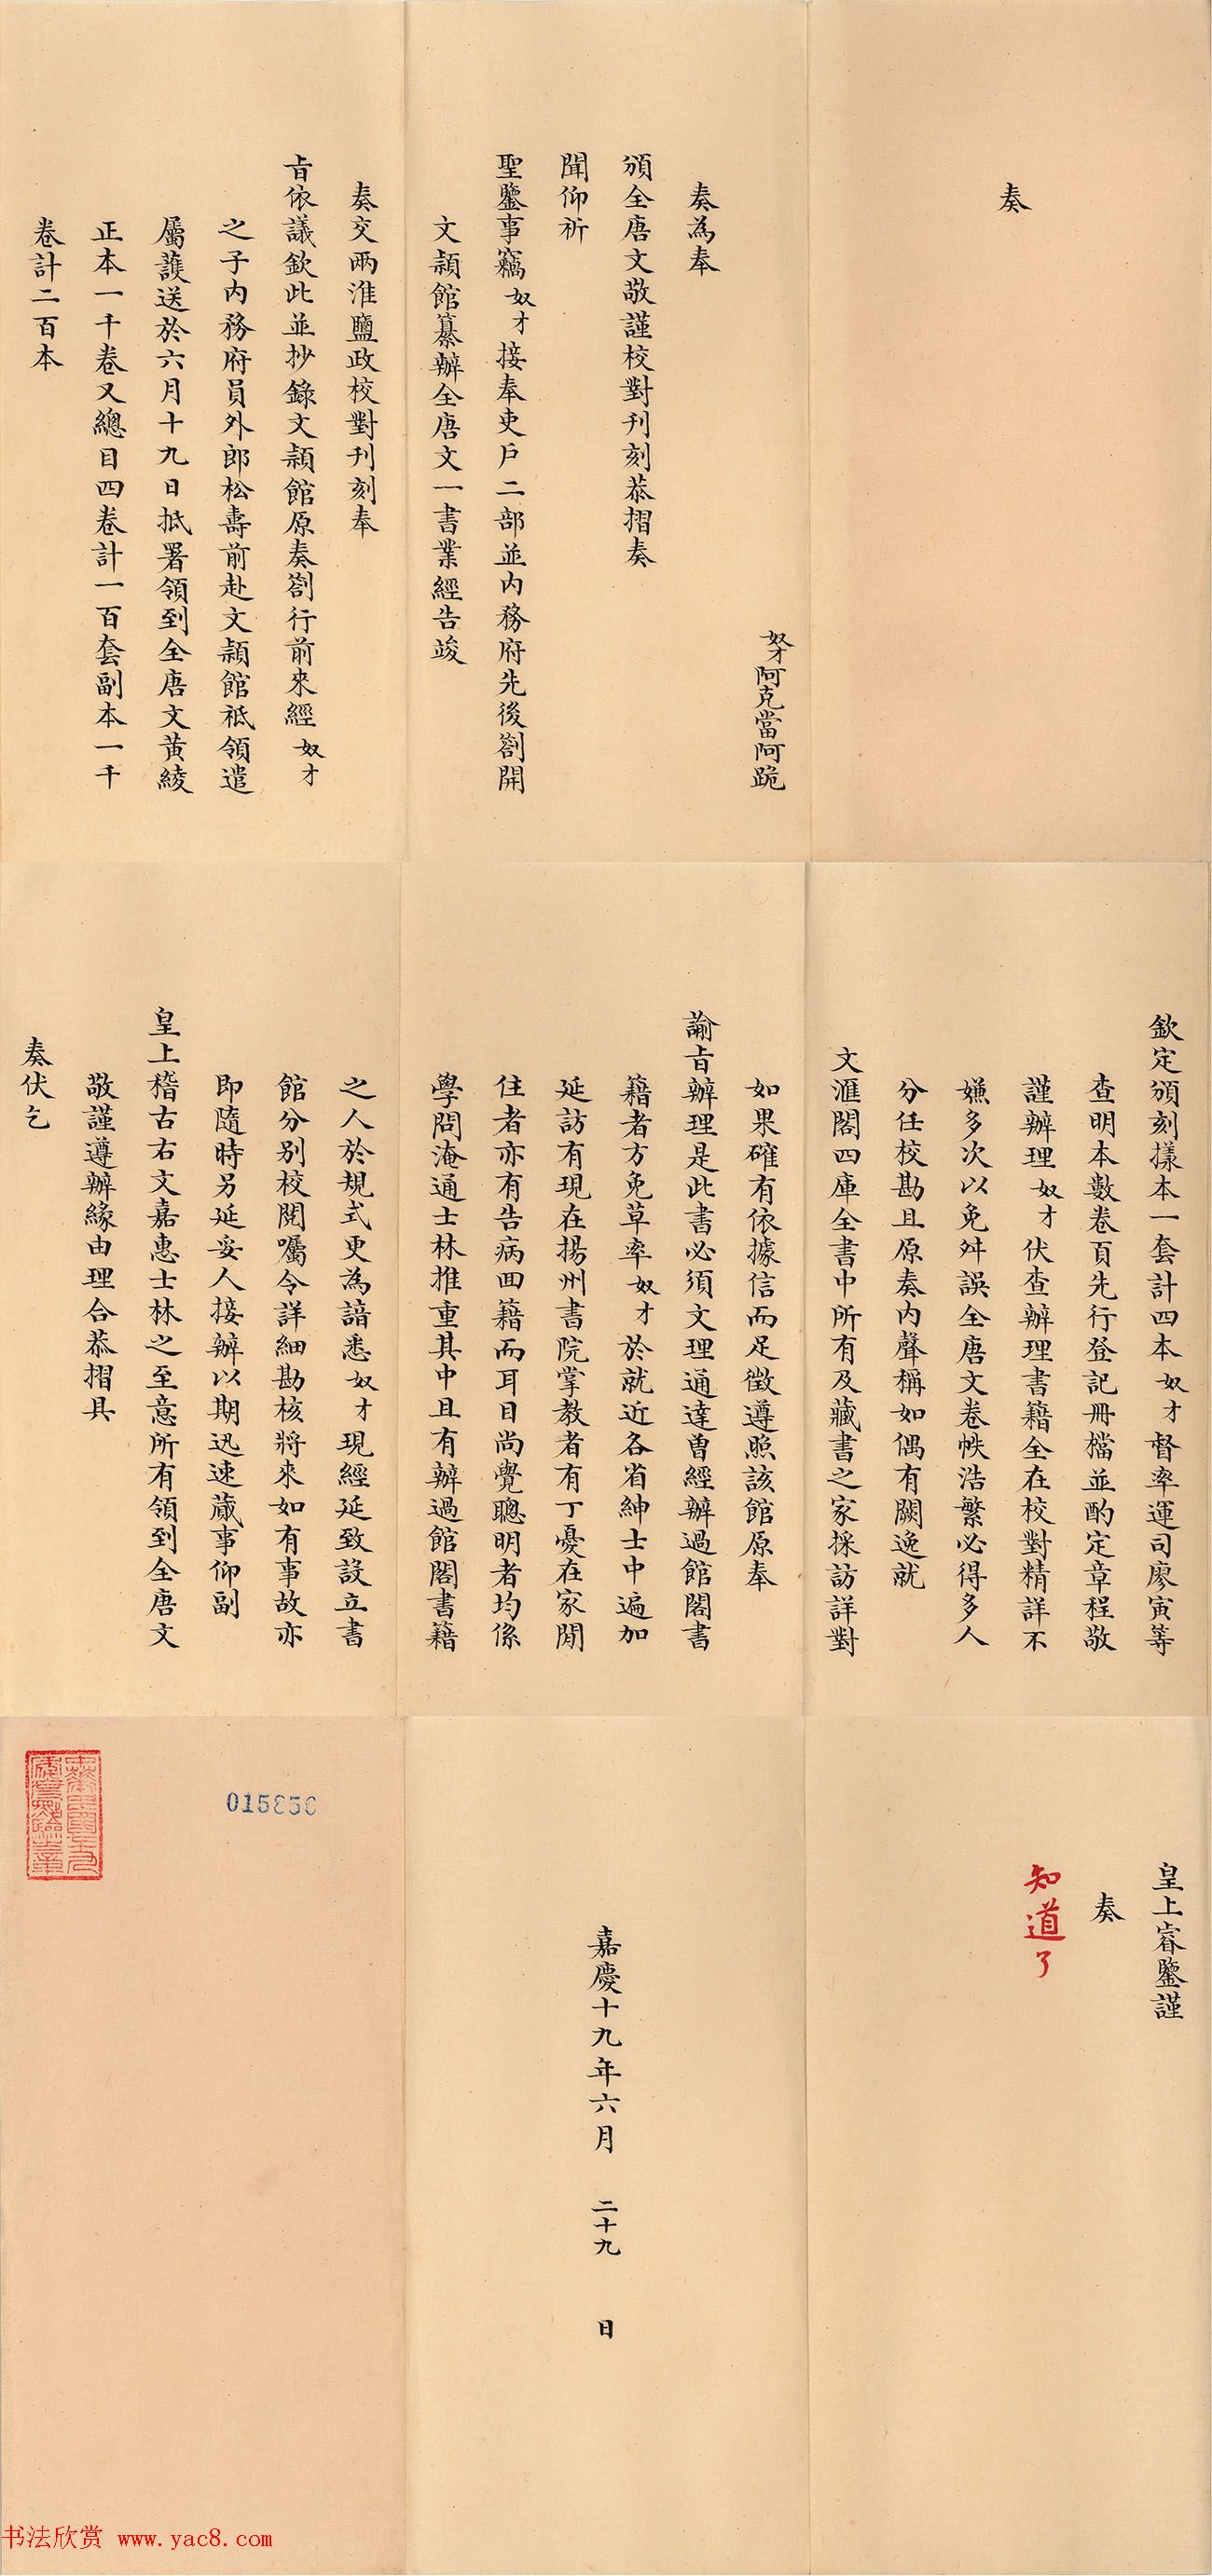 奏
奴才阿克當阿跪
奏為奉
頒全唐文敬謹校對刊刻恭摺奏
聞仰祈
聖鑒事竊奴才接奉吏戶二部並內務府先後劄開
文穎館纂辦全唐文一書業經告竣
奏交兩淮鹽政校對刊刻奉
旨依議欽此並抄錄文穎館原奏劄行前來經奴才
之子內務府員外郎松壽前赴文穎館祗領遣
屬護送於六月十九日抵署領到全唐文黃綾
正本一千卷又總目四卷計一百套副本一千
卷計二百本
欽定頒刻樣本一套計四本奴才督率運司廖寅等
查明本數卷頁先行登記冊檔並酌定章程敬
謹辦理奴才伏查辦理書籍全在校對精詳不
嫌多次以免舛誤全唐文卷帙浩繁必得多人
分任校勘且原奏內聲稱如偶有闕逸就
文滙閣四庫全書中所有及藏書之家採訪詳對
如果確有依據信而足徵遵照該館原奉
諭旨辦理是此書必須文理通達曾經辦過館閣書
籍者方免草率奴才於就近各省紳士中遍加
延訪有現在揚州書院掌教者有丁憂在家閒
住者亦有告病回籍而耳目尚覺聰明者均係
學問淹通士林推重其中且有辦過館閣書籍
之人於規式更為諳悉奴才現經延致設立書
館分別校閱囑令詳細勘核將來如有事故亦
即隨時另延妥人接辦以期迅速蕆事仰副
皇上稽古右文嘉惠士林之至意所有領到全唐文
敬謹遵辦緣由理合恭摺具
奏伏乞
皇上睿鑒謹
奏
知道了
嘉慶十九年六月 二十九 日
書法欣赏 www.yac8.com